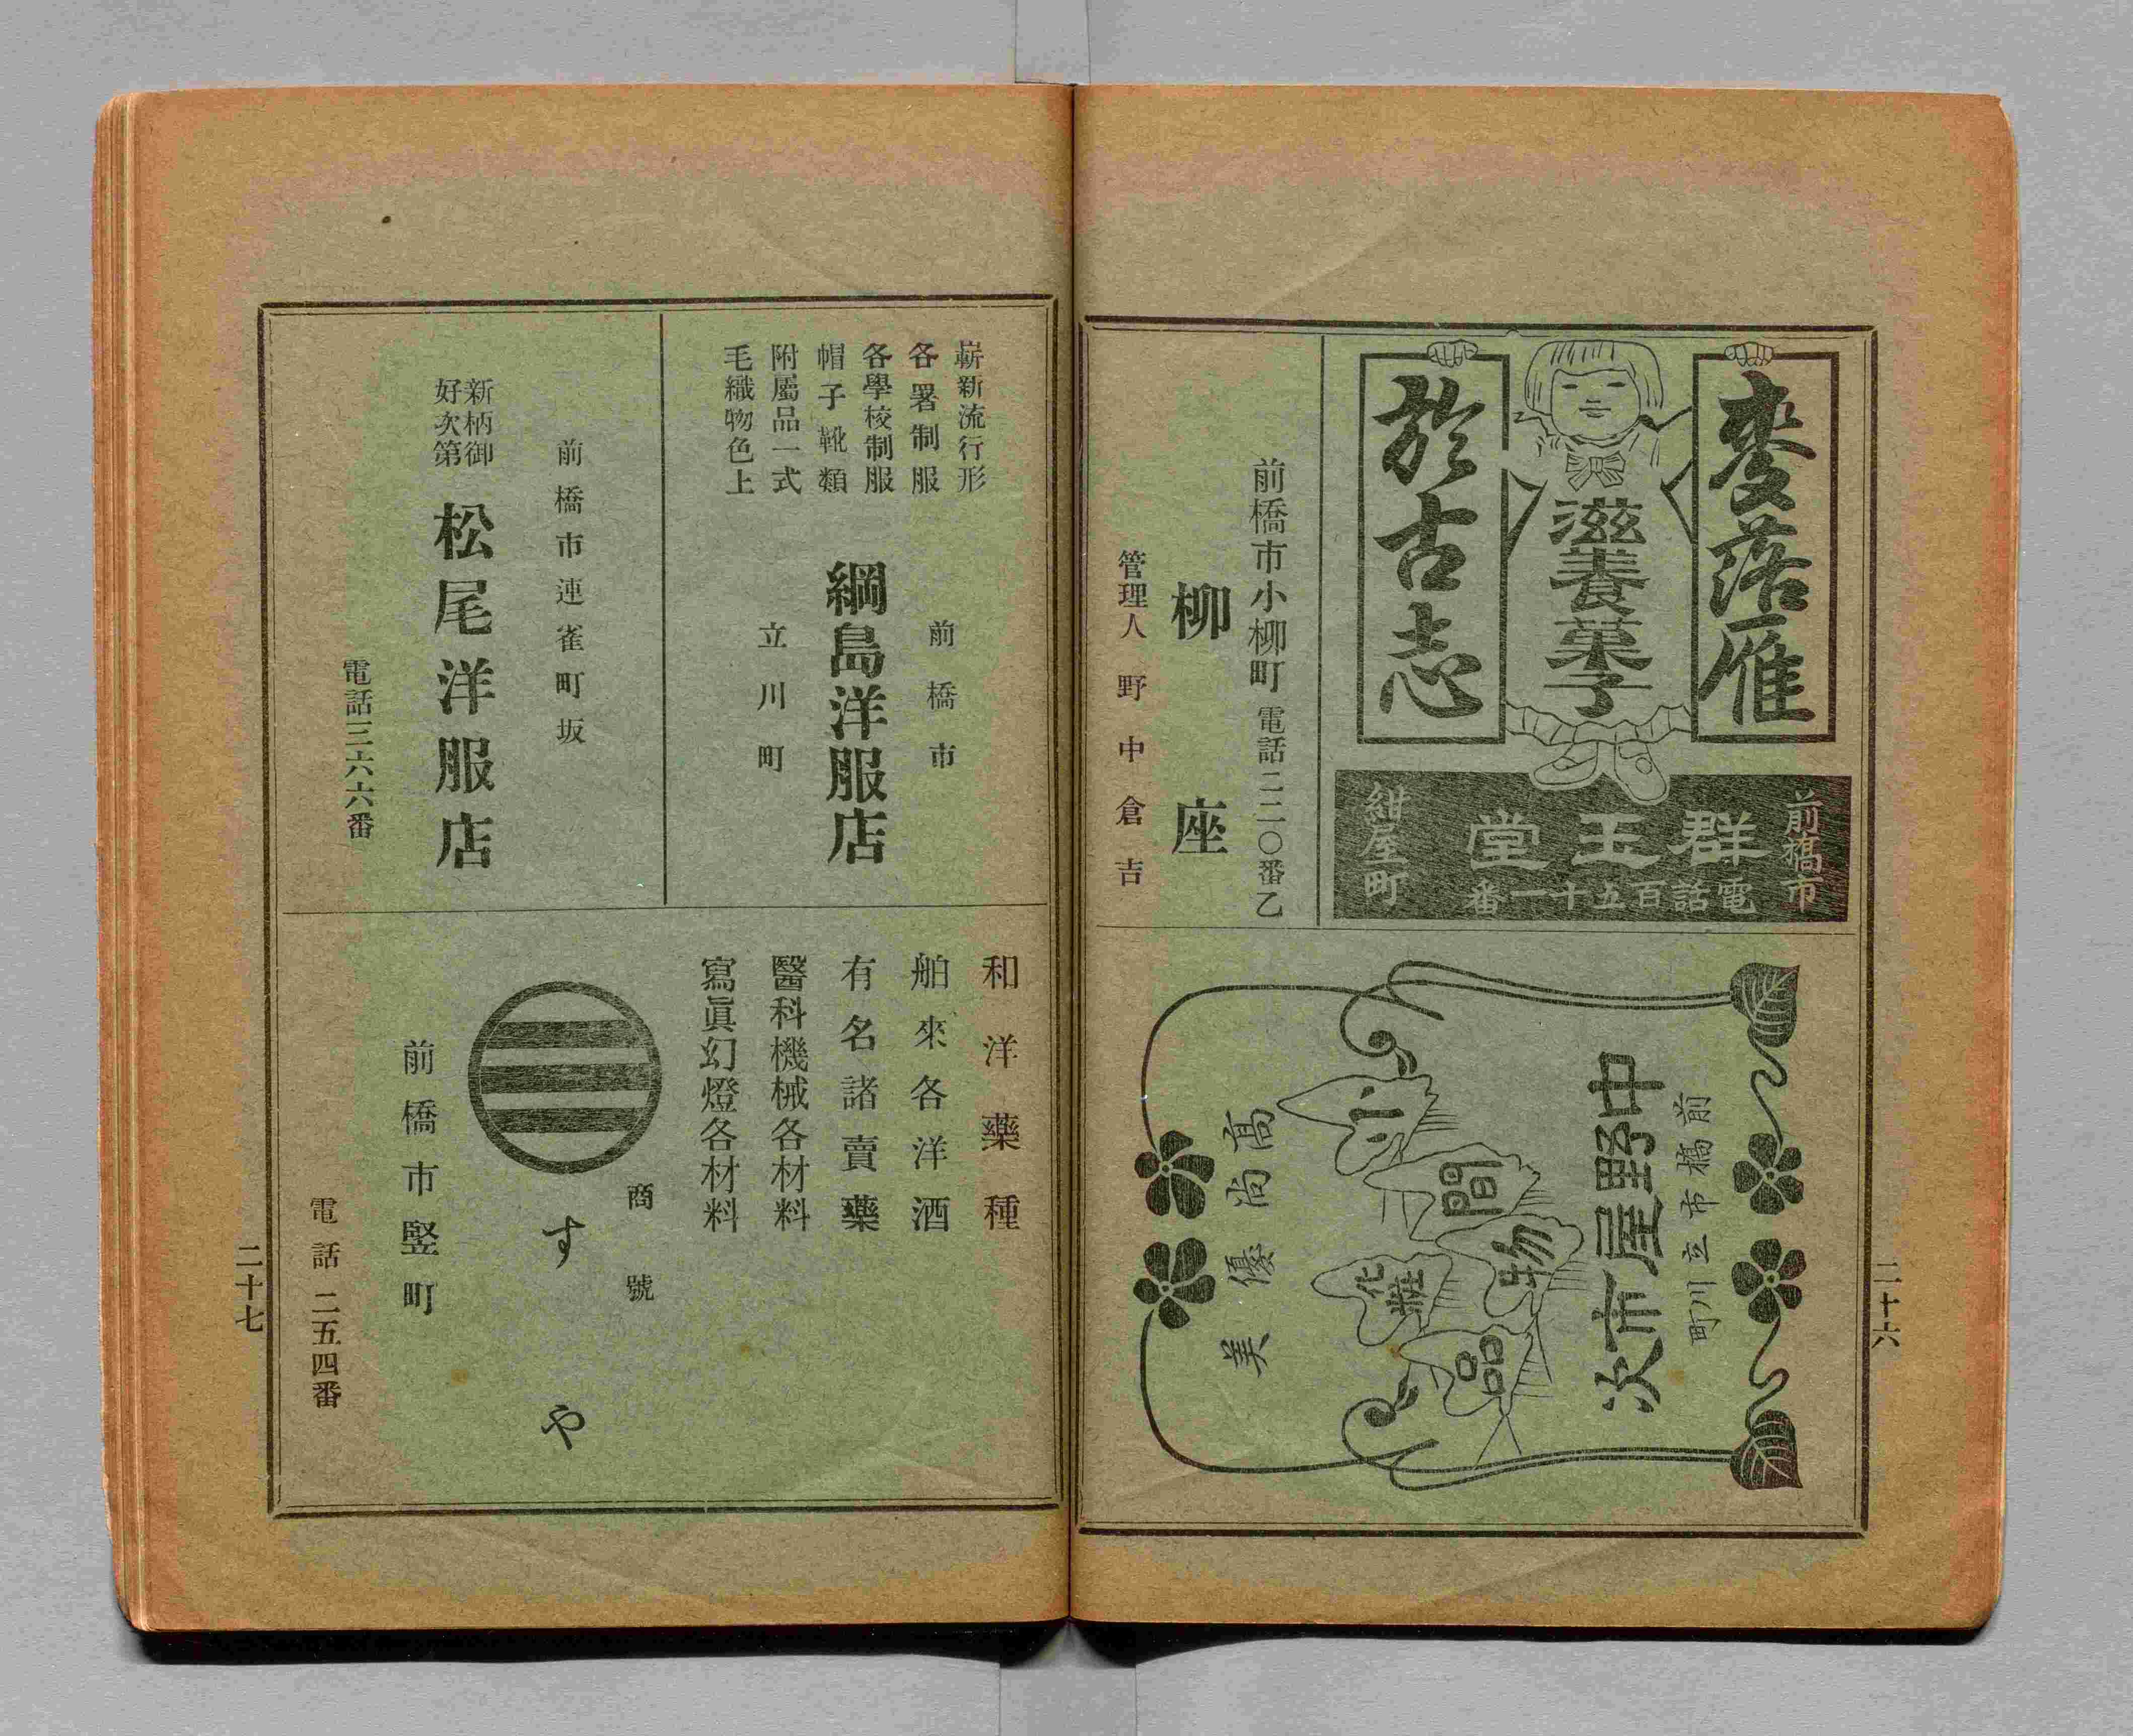 麥落雁
滋養菓子
於古志
前橋市
群玉堂
電話百五十一番
紺屋町
前橋市小柳町 電話二二〇番乙
柳座
管理人 野中倉吉
前橋市立川町
中野屋市次
小間物
化粧品
高尚優美
二十六
嶄新流行形
各署制服
各學校制服
帽子靴類
附屬品一式
毛織物色上
前橋市
綱島洋服店
立川町
前橋市連雀町坂
新柄御
好次第
松尾洋服店
電話三六六番
和洋藥種
舶來各洋酒
有名諸賣藥
醫科機械各材料
寫眞幻燈各材料
商號
すや
前橋市竪町
電話二五四番
二十七